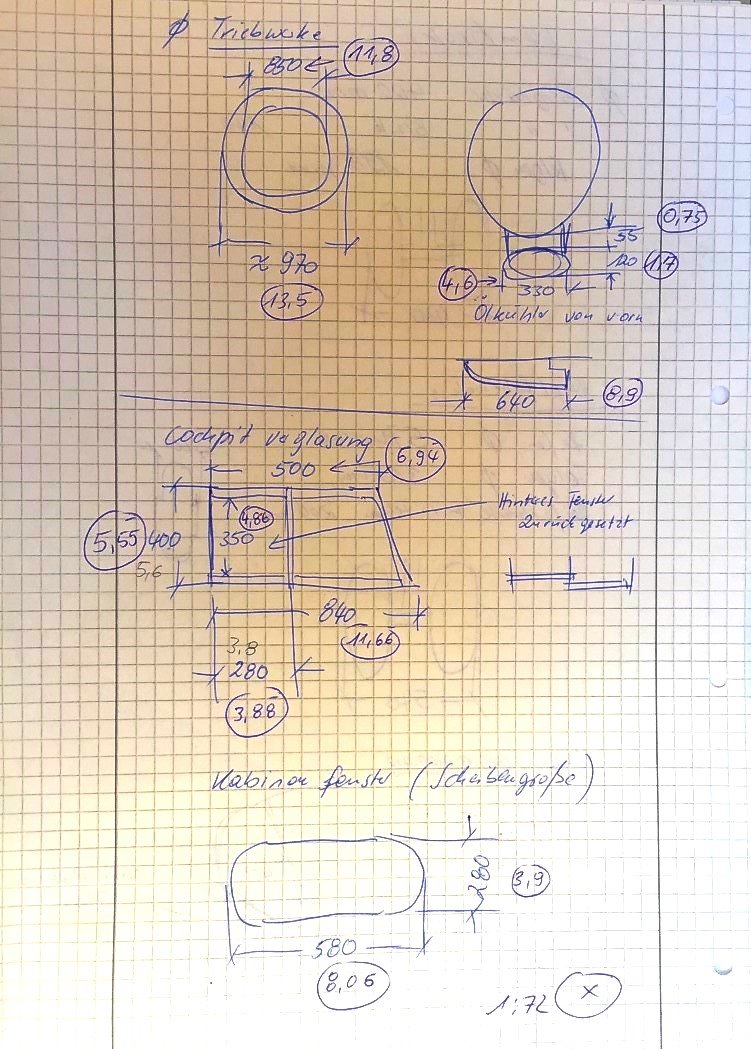 Ø Triebwerke
850 11,8
≈ 970
13,5
0,75
55
120 1,7
4,6 330
Ölkühler von vorn
640 8,9
Cockpit verglasung
500 6,94
4,86
5,55 400 350
5,6
Hinteres Fenster
Zurückgesetzt
840
11,66
3,8
280
3,88
Kabinen fenster (Scheibengröße)
280 3,9
580
8,06
1:72 x